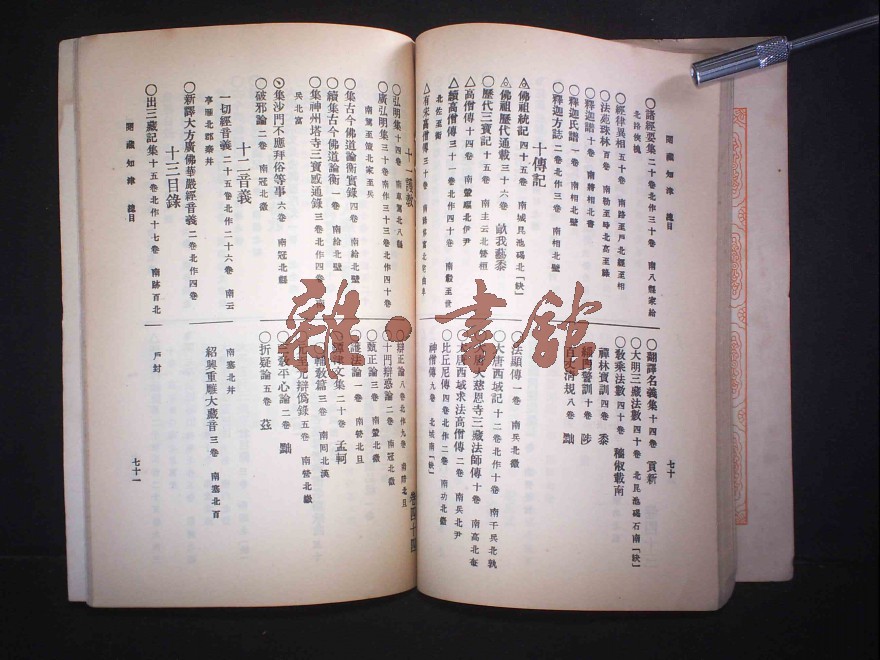 閱藏知津 總目
七十
○諸經要集二十卷北作三十卷 南八縣家給
北路俠槐
○經律異相五十卷 南路至戶北經至相
○法苑珠林百卷 南勒至時北高至路
○釋迦譜十卷 南將相北書
○釋迦氏譜一卷 南相北壁
○釋迦方誌二卷北作三卷 南相北壁
十傳記
佛祖統記四十五卷 南城昆池碣北「缺」
佛祖歷代通載三十六卷 畝我藝黍
○歷代三寶記十五卷 南主云北營桓
△高僧傳十四卷
△續高僧傳三十一卷北作四十卷
北佐至衡
△有宋高僧傳三十卷
○翻譯名義集十四卷 貢新
○大明三藏法數四十卷 北昆池碣石南「缺」
○教乘法數四十卷 稷俶載南
禪林寶訓四卷 黍
緇門警訓十卷 陟
百丈清規八卷 黜
○法顯傳一卷 南兵北徽
○大唐西域記十二卷北作十卷 南千兵北孰
大唐大慈恩寺三藏法師傳十卷 南高北奄
大唐西域求法高僧傳二卷 南兵北尹
○比丘尼傳四卷北作二卷 南功北徽
神僧傳九卷 北城南「缺」
十一護教
卷四十四
○弘明集十四卷
○廣弘明集三十卷南作三十三卷北作四十卷
南駕至策北家至兵
集古今佛道論衡實錄四卷 南給北壁
○續集古今佛道論衡一卷 南給北壁
○集神州塔寺三寶感通錄三卷北作四卷
兵北富
集沙門不應拜俗等事六卷 南冠北縣
○破邪論二卷 南冠北徽
十二音義
一切經音義二十五卷北作二十六卷 南云
○新譯大方廣佛華嚴經音義二卷北作四卷
十三目錄
○出三藏記集十五卷北作十七卷 南跡百北
○辯正論八卷北作九卷 南陪北旦
○十門辯惑論二卷 南冠北徽
○甄正論三卷 南輦北徽
○護法論一卷 南營北旦
鐔津文集二十卷 孟軻
輔教篇三卷 南囘北漢
至元辯僞錄五卷 南營北徽
三教平心論二卷 黜
○折疑論五卷 茲
南塞北井
紹興重雕大藏音三卷 南塞北百
戶封
閱藏知津 總目
七十一
雜·書館